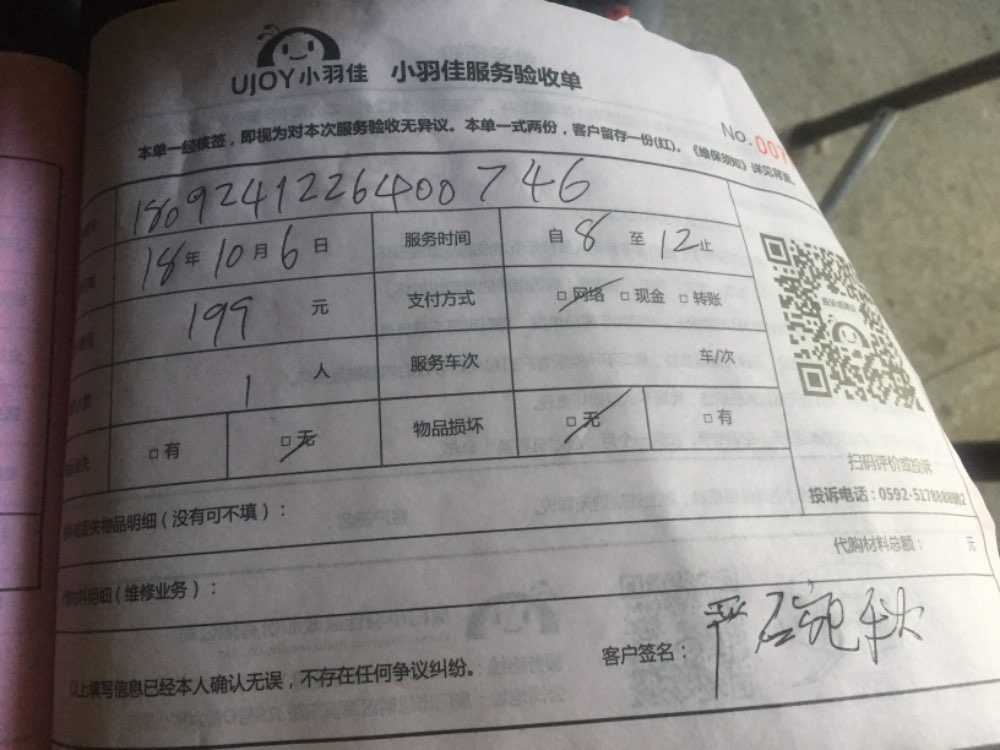 UJOY小羽佳 小羽佳服务验收单
No. 007
本单一经核签，即视为对本次服务验收无异议。本单一式两份，客户留存一份(红)、《维保须知》详见背表。
180924122640 0746
18年10月6日 服务时间 自8至12止
199元 支付方式 □网络 □现金 □转账
1人 服务车次 车/次
□有 □无 物品损坏 □无 □有
扫码评价或投诉
投诉电话：0592-5178888
丢失物品明细（没有可不填）：
代购材料总额： 元
料明细（维修业务）：
以上填写信息已经本人确认无误，不存在任何争议纠纷。 客户签名：严石 秋